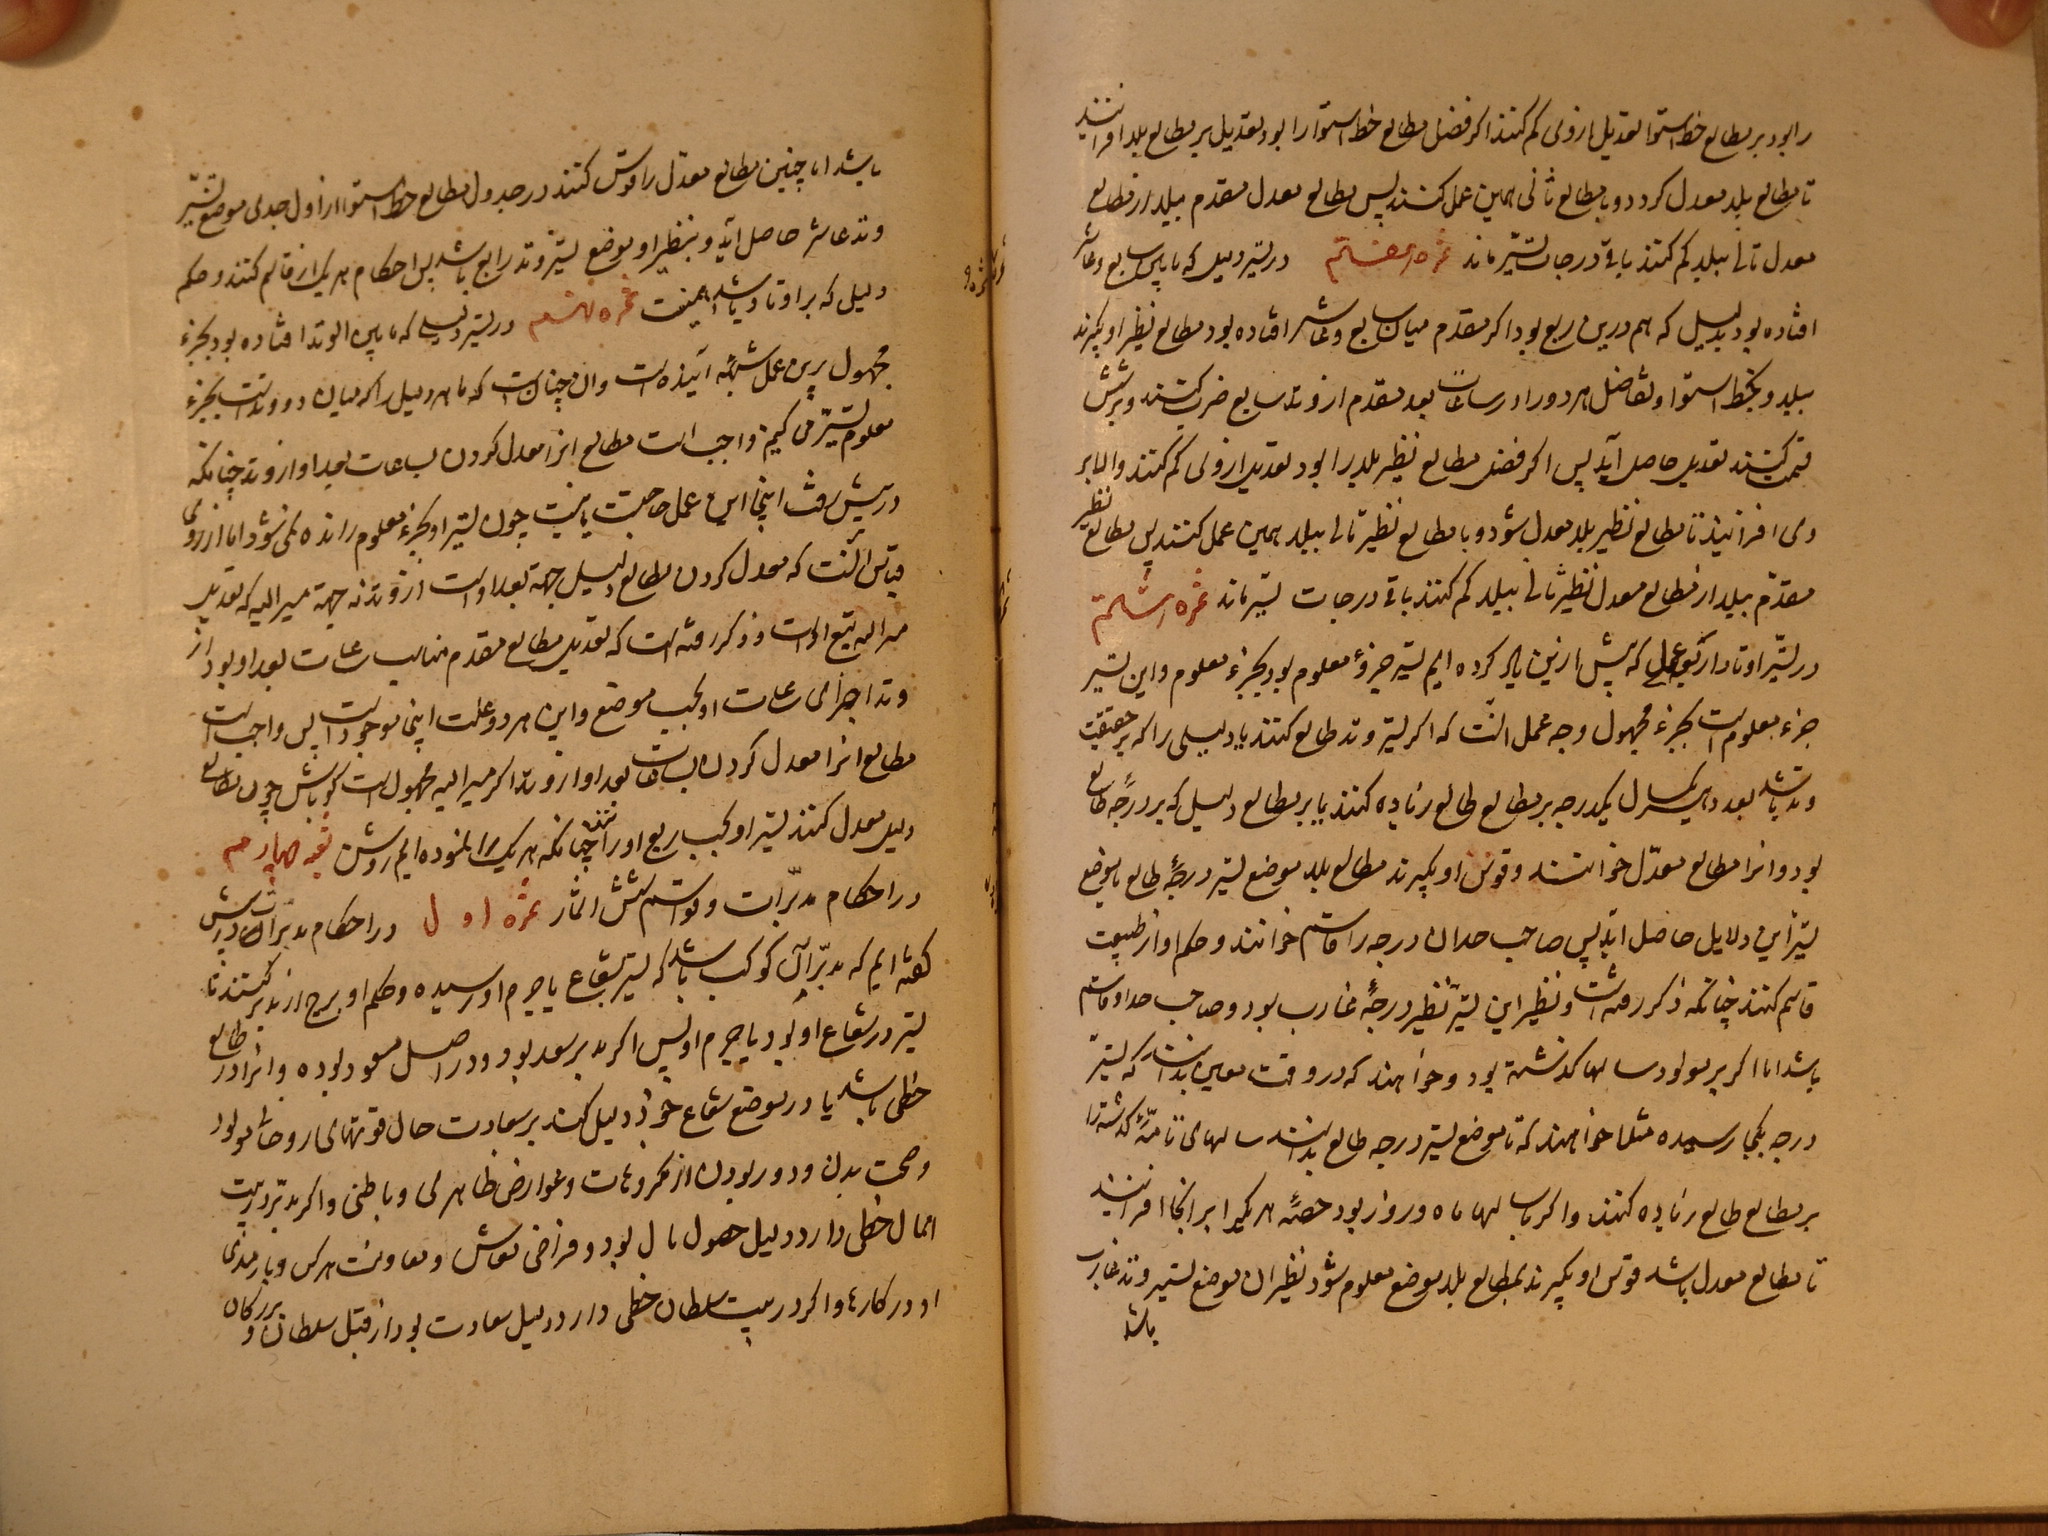 را بود بر مطالع خط استوا تعدیل از وی کم کنند اگر فضل مطالع خط استوا را بود تعدیل بر مطالع بلد افزایند
تا مطالع بلد معدل کردد و با مطالع ثانی همین عمل کنند پس مطالع معدل مقدم ببلد از مطالع
معدل ثانی ببلد کم کنند باقی درجات تسییر ماند ثمره هفتم در تسییر دلیل که مابین سابع و عاشر
افتاده بود بدلیل که هم درین ربع بود اکر مقدم میان سابع و عاشر افتاده بود مطالع نظیر او بکیرند
ببلد و بخط استوا و تفاضل هر دو را در ساعات بعد مقدم از وتد سابع ضرب کنند و بر شش
قسمت کنند تعدیل حاصل آید پس اکر فضل مطالع نظیر بلد را بود تعدیل از وی کم کنند والا بر
وی افزایند تا مطالع نظیر بلد معدل شود و با مطالع نظیر ثانی ببلد همین عمل کنند پس مطالع نظیر
مقدم ببلد از مطالع معدل نظیر ثانی ببلد کم کنند باقی درجات تسییر ماند ثمره هشتم
در تسییر اوتاد که پیش ازین یاد کرده ایم تسییر جزؤ معلوم بود بجزء معلوم و این تسییر
جزء معلوم است بجزء مجهول وجه عمل انست که اکر تسییر وتد طالع کنند یا دلیلی را که بر حقیقت
وتد باشد بعدد هر سال یکدرجه بر مطالع طالع زیاده کنند یا بر مطالع دلیل که بر درجه طالع
بود و انرا مطالع معدل خوانند و قوس او بکیرند مطالع بلد موضع تسییر درجه طالع یا موضع
تسییر این دلایل حاصل اید پس صاحب حد ان درجه را قاسم خوانند و حکم او از طبیعت
قاسم کنند چنانکه ذکر رفته است و نظیر این تسییر نظیر درجه غارب بود و صاحب حد او قاسم
باشد اما اکر بر مولود سالها کذشته بود و خواهند که در وقت معین بدانند که تسییر
درجه بکجا رسیده مثلا خواهند که تا موضع تسییر درجه طالع بدانند سالهای تامه کذشته را
بر مطالع طالع زیاده کنند واکر با سالها ماه و روز بود حصه هر یکی را بر انجا افزایند
تا مطالع معدل باشد قوس او بکیرند بمطالع بلد موضع معلوم شود نظیر ان موضع تسییر وتد غارب
باشد
باشد اما چنین مطالع معدل را قوس کنند در جدول مطالع خط استوا از اول جدی موضع تسییر
وتد عاشر حاصل آید و نظیر او موضع تسییر وتد رابع باشد پس احکام هر یک از قاسم کنند و حکم
دلیل که بر اوتاد باشد همینست ثمره نهم در تسییر دلیلی که مابین الوتد افتاده بود بجزء
مجهول برین عمل شبهه آینده است وان چنان است که ما هر دلیل را که میان دو وتد است بجزء
معلوم تسییر می کنیم واجب است مطالع انرا معدل کردن بساعات بعد او از وتد چنانکه
در پیش رفت اینجا این عمل حاجت یا نیست چون تسییر او بجزء معلوم رانده نمی شود اما از روی
قیاس آنست که معدل کردن مطالع دلیل جهة بعد اوست از وتد نه جهة مسیر الیه که تعدیل
مسیر الیه تبع اوست و ذکر رفته است که تعدیل مطالع مقدم مناسب ساعات بعد او بود از
وتد اجزای ساعات او بحسب موضع و این هر دو علت اینجا موجود است پس واجب است
مطالع انرا معدل کردن بساعات بعد او از وتد اکر مسیر الیه مجهول است کو باش چون مطالع
دلیل معدل کنند تسییر او بحسب ربع او رانند چنانکه هر یک را بنموده ایم روشن شعبه چهارم
در احکام مدبرات و قواسم شش اثمار ثمره اول در احکام مدبرات در پیش
کفته ایم که مدبر آن کوکب باشد که تسییر بشعاع یا جرم او رسیده و حکم او برج از مدبر کنند تا
تسییر در شعاع او بود یا جرم او پس اکر مدبر سعد بود و در اصل مسعود بوده و انرا در طالع
حظی باشد یا در موضع شعاع خود دلیل کند بر سعادت حال قوتهای روحانی مولود
و صحت بدن و دور بودن از مکروهات و عوارض ظاهری و باطنی و اکر مدبر در بیت
المال حظی دارد دلیل حصول مال بود و فراخی معاش و معاونت هر کس و یارمندی
او در کارها و اکر در بیت سلطان حظی دارد دلیل سعادت بود از قبل سلطان و بزرکان